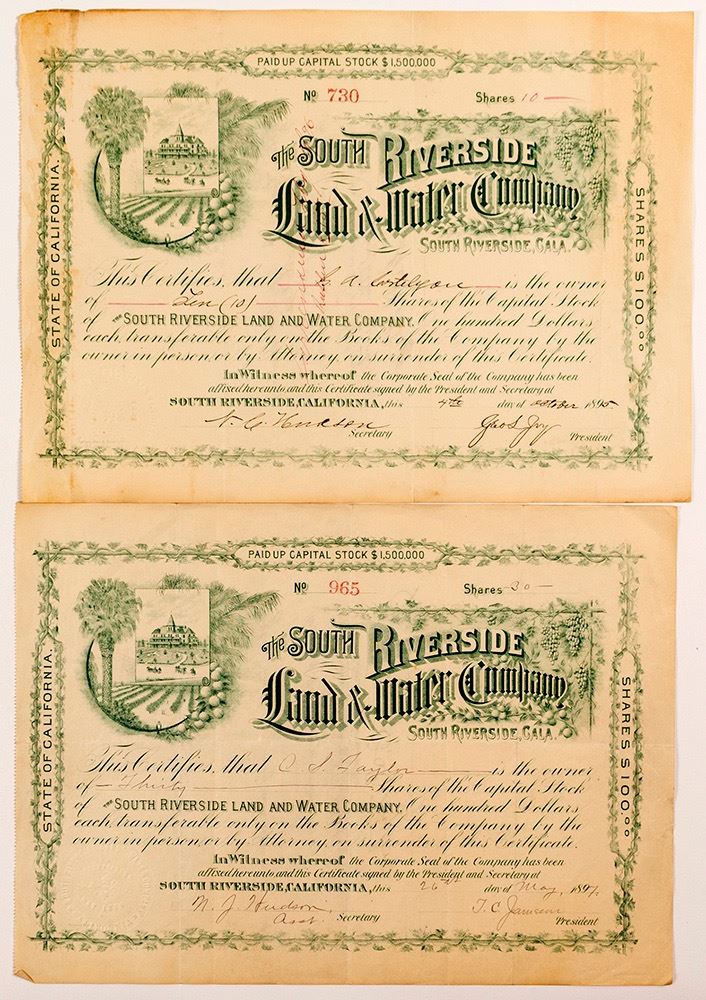 PAID UP CAPITAL STOCK $1,500,000
No 730 Shares 10
STATE OF CALIFORNIA.
The SOUTH RIVERSIDE
Land & Water Company
SOUTH RIVERSIDE, CALA.
SHARES $100.00
This Certifies, that A. is the owner
of Ten (10) Shares of the Capital Stock
of THE SOUTH RIVERSIDE LAND AND WATER COMPANY. One hundred Dollars
each, transferable only on the Books of the Company by the
owner in person or by Attorney on surrender of this Certificate.
In Witness whereof the Corporate Seal of the Company has been
affixed hereunto, and this Certificate signed by the President and Secretary at
SOUTH RIVERSIDE, CALIFORNIA, this 4th day of October 1895.
N. C. Hudson Geo L Joy
Secretary President
PAID UP CAPITAL STOCK $1,500,000
No 965 Shares 30
STATE OF CALIFORNIA.
The SOUTH RIVERSIDE
Land & Water Company
SOUTH RIVERSIDE, CALA.
SHARES $100.00
This Certifies, that O. S. Taylor is the owner
of Thirty Shares of the Capital Stock
of THE SOUTH RIVERSIDE LAND AND WATER COMPANY. One hundred Dollars
each, transferable only on the Books of the Company by the
owner in person or by Attorney on surrender of this Certificate.
In Witness whereof the Corporate Seal of the Company has been
affixed hereunto, and this Certificate signed by the President and Secretary at
SOUTH RIVERSIDE, CALIFORNIA, this 26th day of May, 1897.
M. J. Hudson T. C. Jameson
Asst. Secretary President